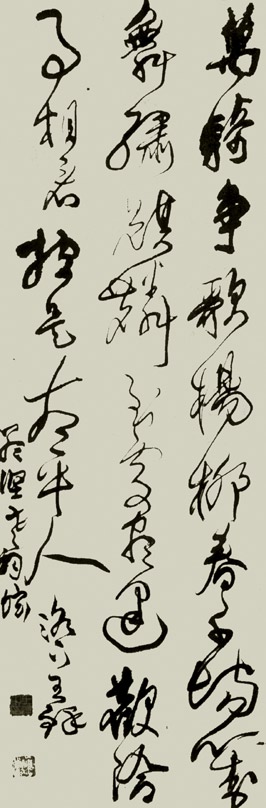 萬騎爭歌楊柳春千場對
舞繡騏驎到處盡逢歡洽
事相看總是太平人
洛下王鐸